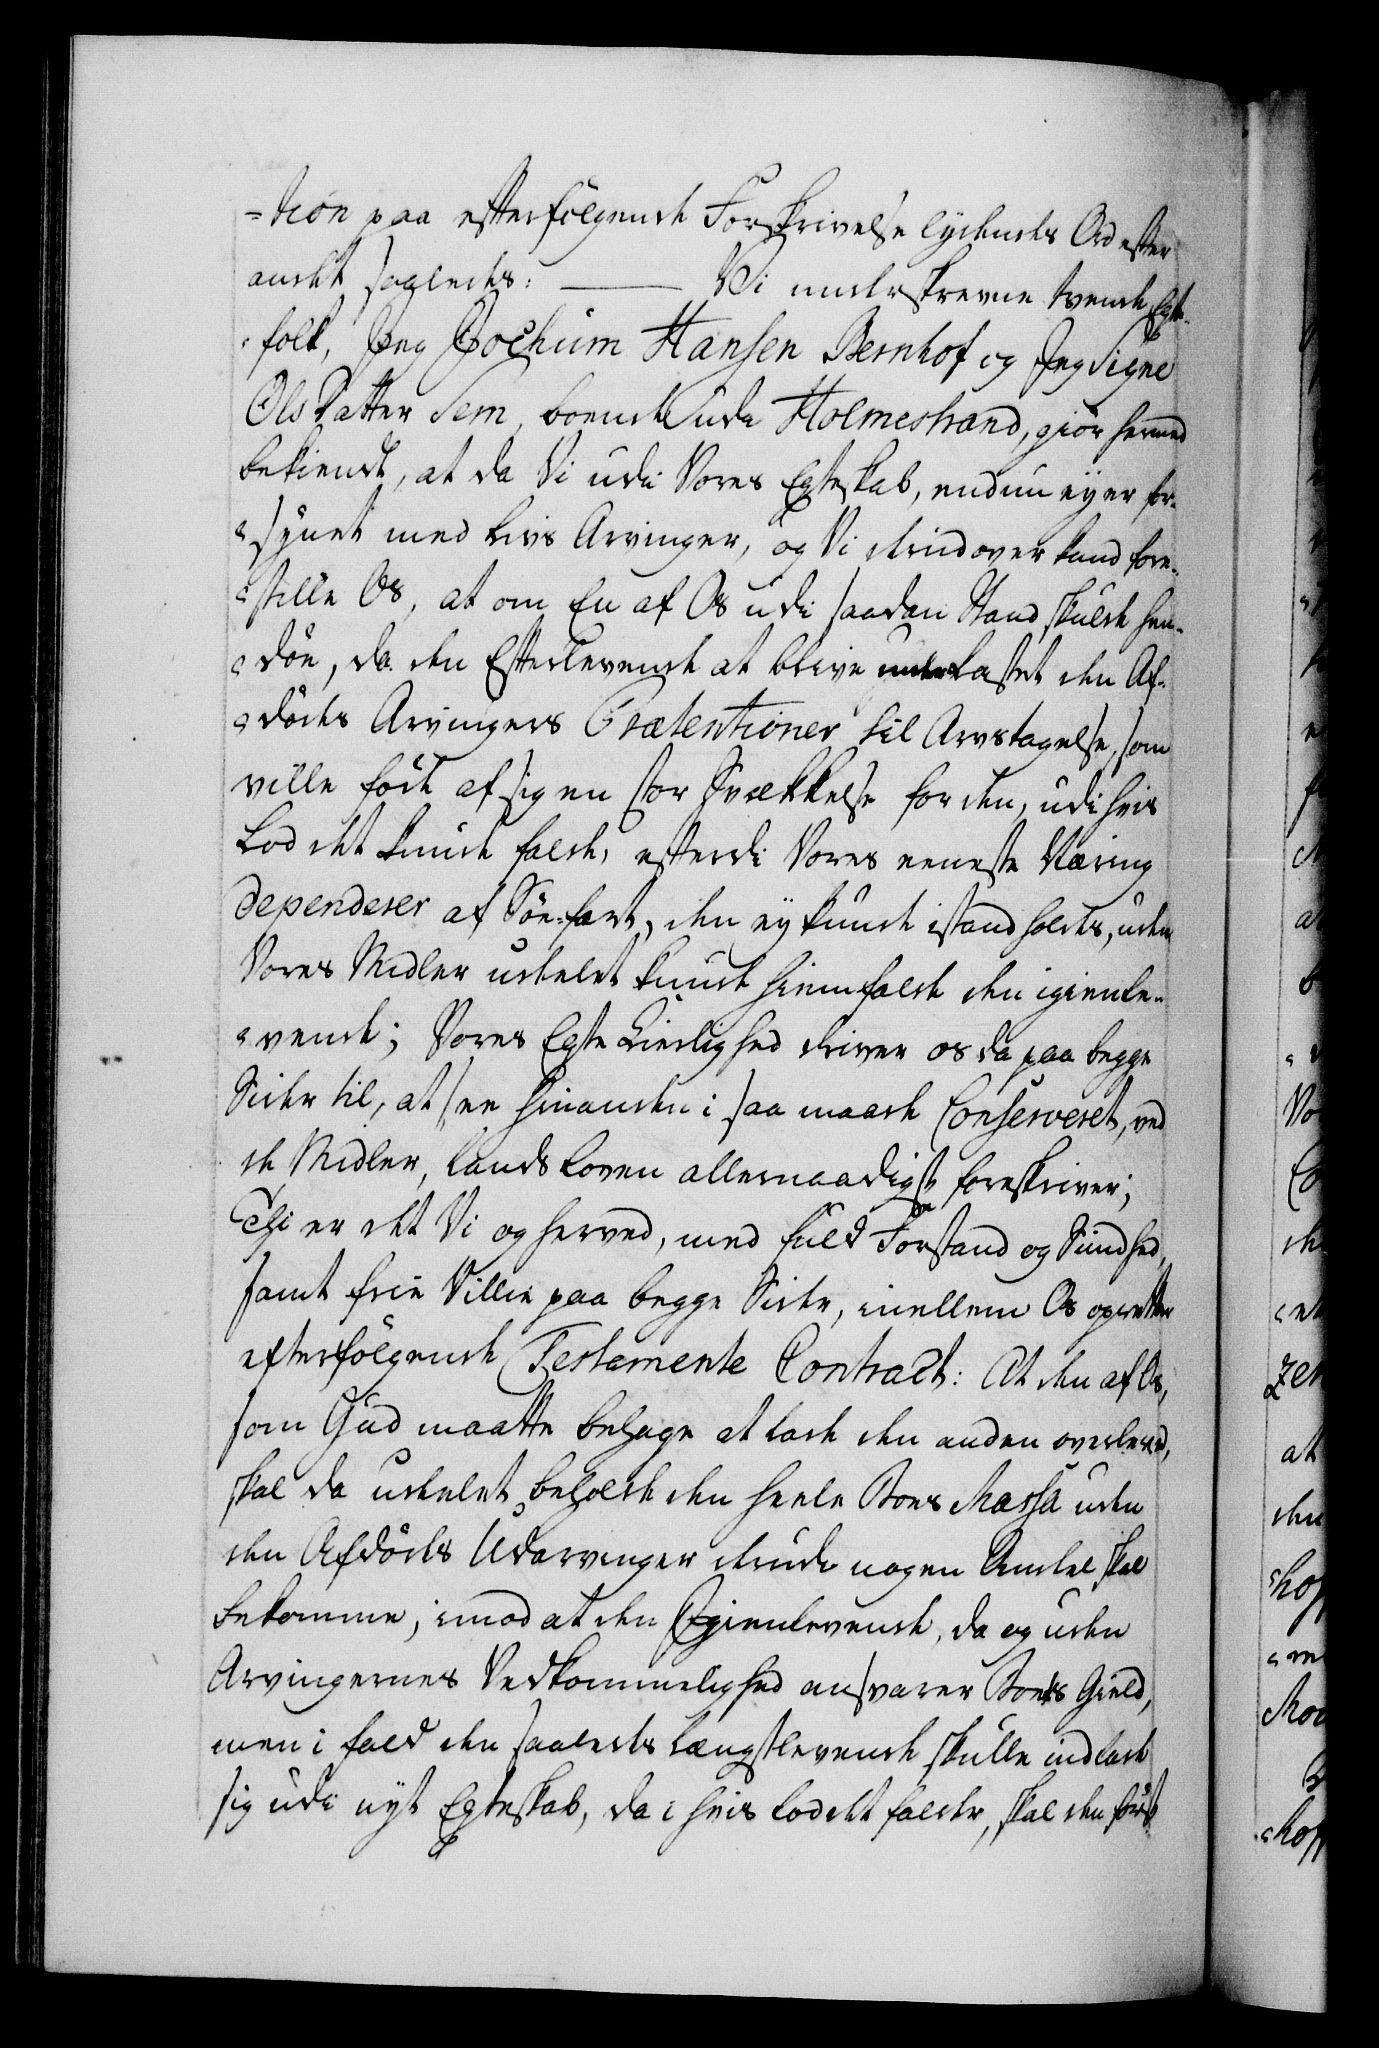 =tion paa efterfølgende Forskrivelse lydendes Ord efter
andet saaledes: ——— Vi underskrevne tvende Egte-
-folk, Jeg Jochum Hansen Bernhof og Jeg Signe
OlsDatter Sem, boende udi Holmestrand, giør hermed
bekiendt, at da Vi udi Vores Egteskab, endnu ey er for-
=synet med Livs Arvinger, og Vi derudover kand fore-
=stille Os, at om En af Os udi saadan Stand skulde hen-
=døe, da den Efterlevende at blive underkastet den Af-
=dødes Arvingers Prætentioner til Arvstagelse, som
ville føde af sig en stor Svækkelse for den, udi hvis
Lod det kunde falde, efterdi Vores eeneste Næring
dependerer af Søe-fart, den ey kunde istandholdes, uden
Vores Midler udeelet kunde hiemfalde den igienle-
=vende; Vores Egte Kierlighed driver os da paa begge
Sider til, at see hinanden i saa maade Conserveret, ved
de Midler, Lands Loven allernaadigst foreskriver;
Thi er det Vi og herved, med fuld Forstand og Sundhed,
samt frie Villie paa begge Sider, imellem Os opretter
efterfølgende Testamente Contract: At den af Os,
som Gud maatte behage at lade den anden overleve,
skal da udeelet beholde den heele Boes Massa uden
den Afdødes Udarvinger derudi nogen Andeel skal
bekomme, imod at den Igienlevende, da og uden
Arvingernes Vedkommelighed ansvarer Boets Gield,
men i fald den saaledes Længstlevende skulle indlade
sig udi nyt Egteskab, da i hvis Lod det falder, skal den først